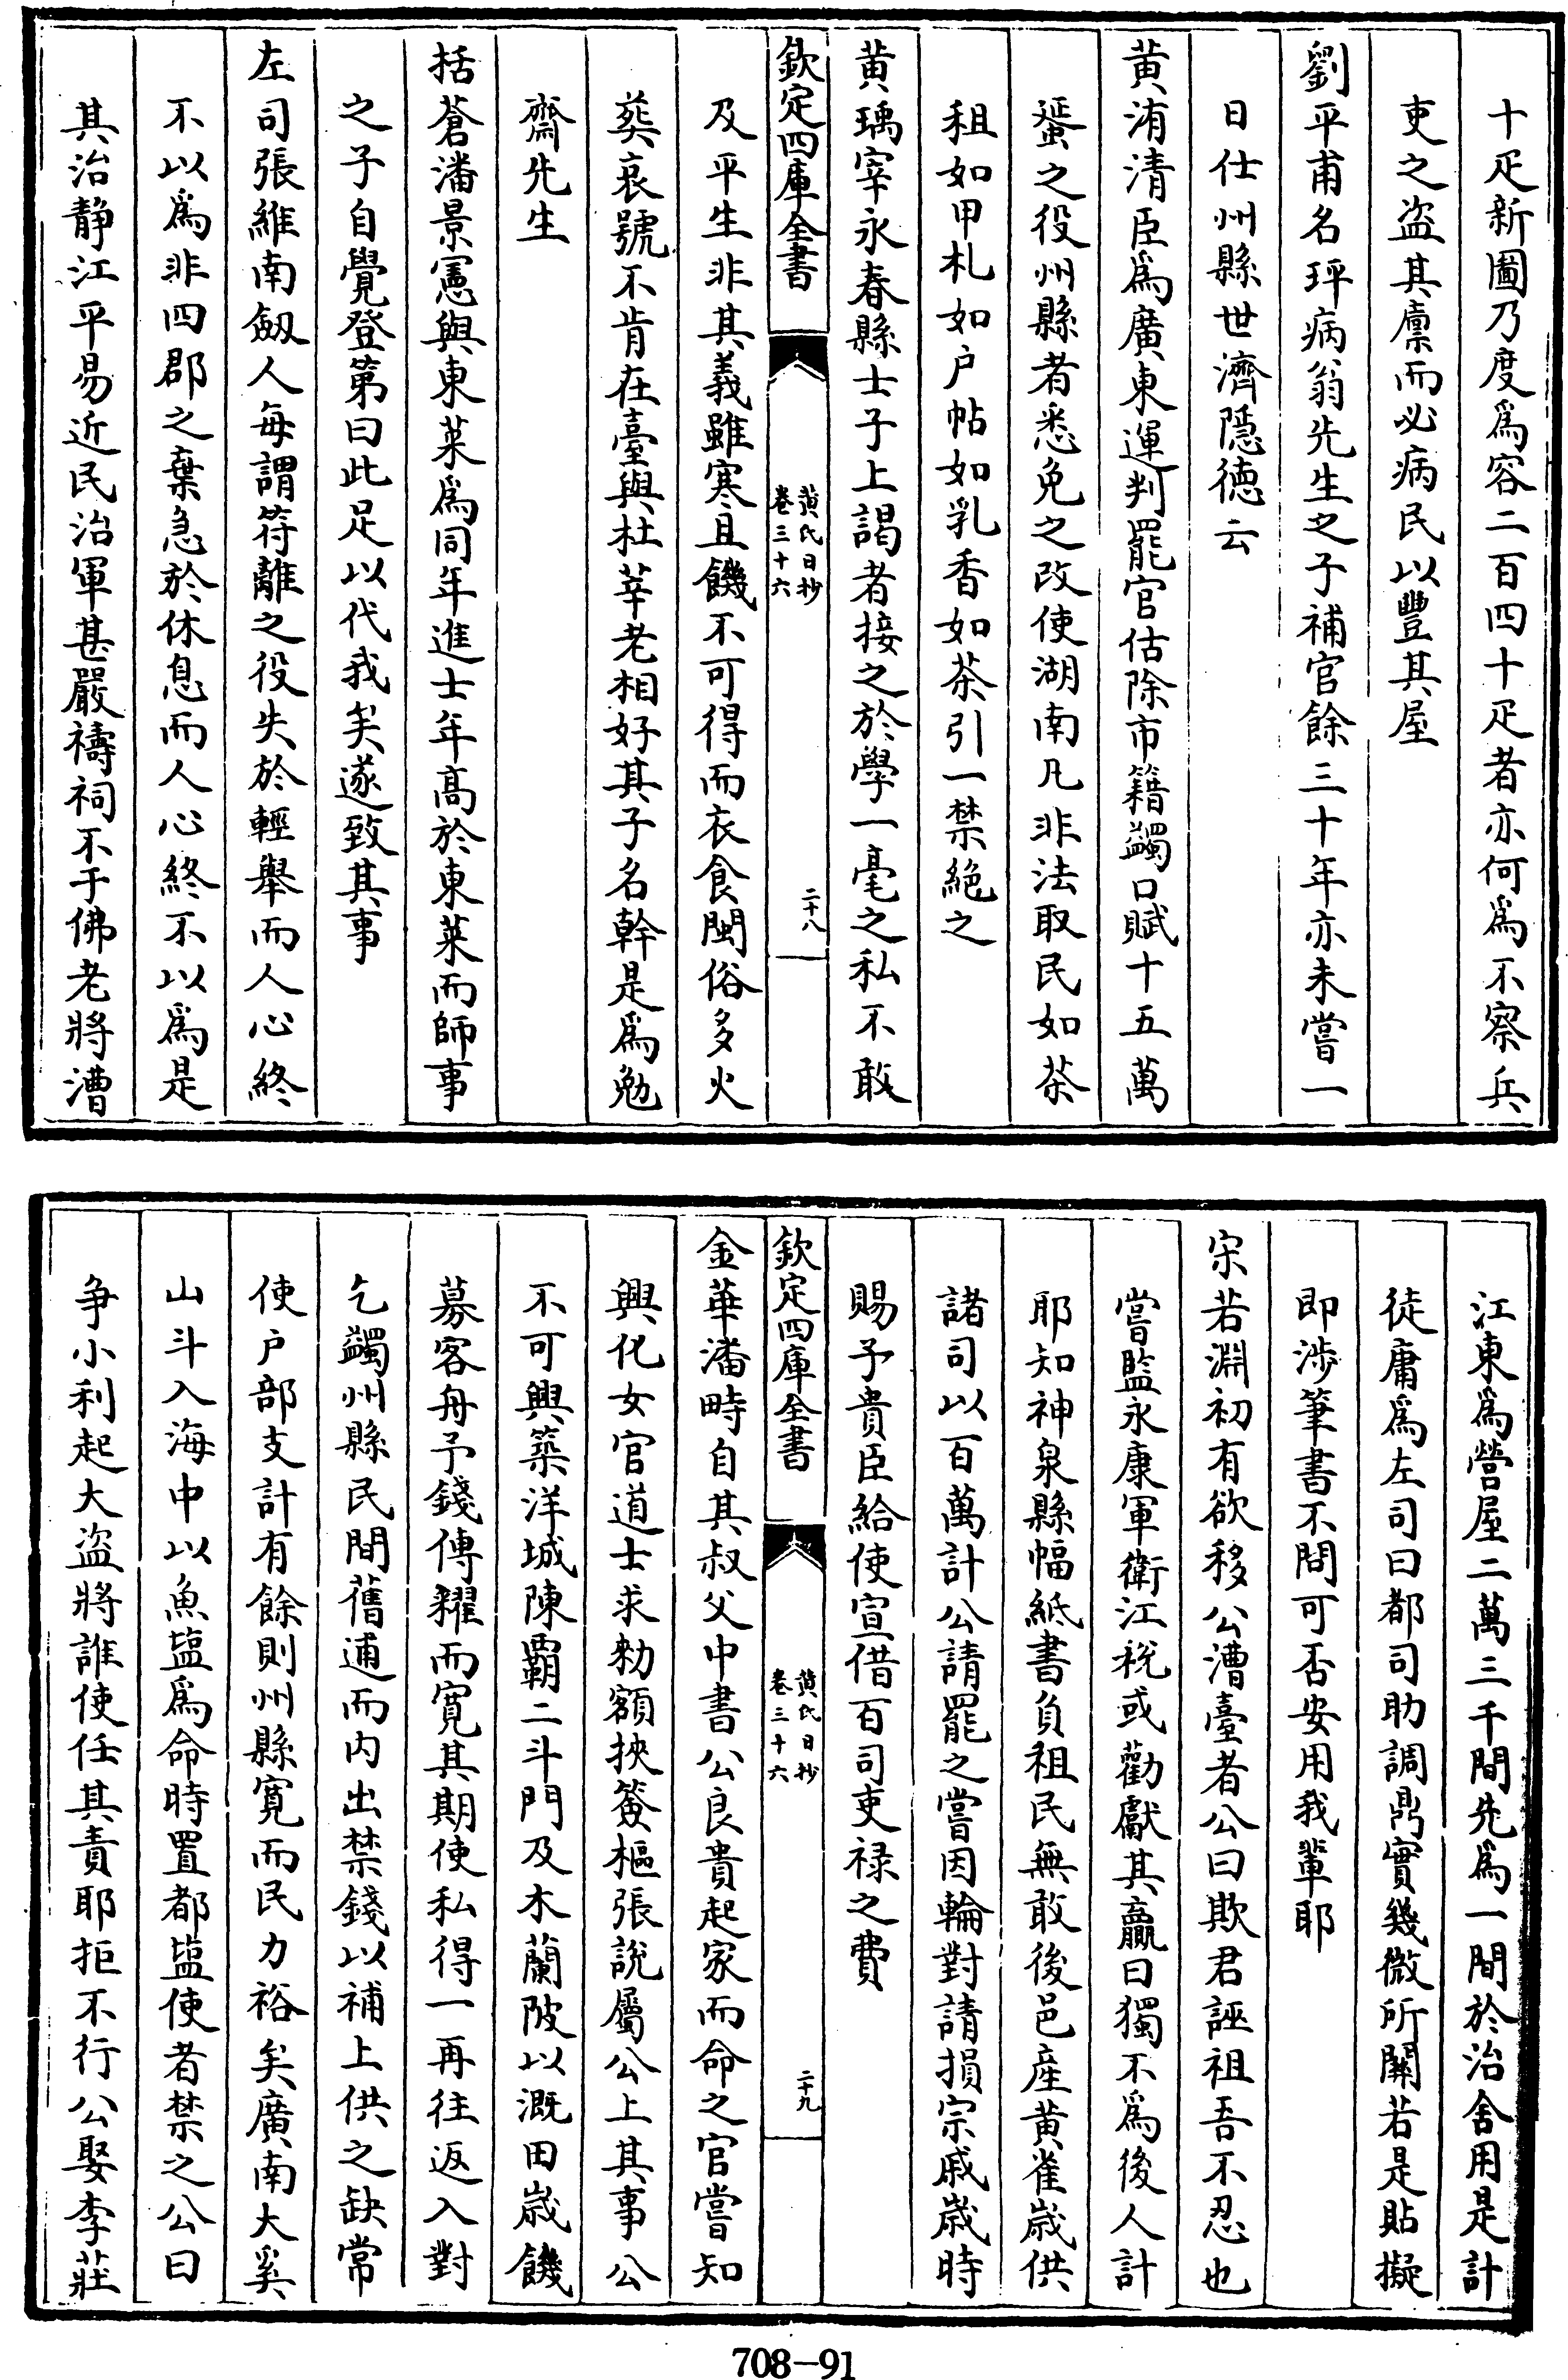 十疋新圖乃度爲容二百四十疋者亦何爲不察兵
吏之盗其廩而必病民以豐其屋
劉平甫名玶病翁先生之子補官餘三十年亦未嘗一
日仕州縣世濟隱徳云
黄洧清臣爲廣東運判罷官估除市籍蠲口賦十五萬
蜑之役州縣者悉免之改使湖南凡非法取民如茶
租如甲札如户帖如乳香如茶引一禁絶之
黄瑀宰永春縣士子上謁者接之於學一毫之私不敢
欽定四庫全書
黄氏日抄
卷三十六
二十八
及平生非其義雖寒且饑不可得而衣食閩俗多火
葬哀號不肯在臺與杜莘老相好其子名幹是爲勉
齋先生
括蒼潘景憲與東莱爲同年進士年高於東莱而師事
之子自覺登第曰此足以代我矣遂致其事
左司張維南劔人每謂符離之役失於輕舉而人心終
不以爲非四郡之棄急於休息而人心終不以爲是
其治静江平易近民治軍甚嚴禱祠不于佛老將漕
江東爲營屋二萬三千間先爲一間於治舍用是計
徒庸爲左司曰都司助調鼎實幾微所闗若是貼擬
即渉筆書不問可否安用我軰耶
宋若淵初有欲移公漕臺者公曰欺君誣祖吾不忍也
嘗監永康軍衛江税或勸獻其贏曰獨不爲後人計
耶知神泉縣幅紙書負租民無敢後邑産黄雀嵗供
諸司以百萬計公請罷之嘗因輪對請損宗戚嵗時
賜予貴臣給使宣借百司吏禄之費
欽定四庫全書
黄氏日抄
卷三十六
二十九
金華潘畤自其叔父中書公良貴起家而命之官嘗知
興化女官道士求勑額挾簽樞張説屬公上其事公
不可興築洋城陳霸二斗門及木蘭陂以溉田嵗饑
募客舟予錢傳糴而寛其期使私得一再往返入對
乞蠲州縣民間舊逋而内出禁錢以補上供之缺常
使户部支計有餘則州縣寛而民力裕矣廣南大奚
山斗入海中以魚塩爲命時置都塩使者禁之公曰
争小利起大盗將誰使任其責耶拒不行公娶李莊
708-91